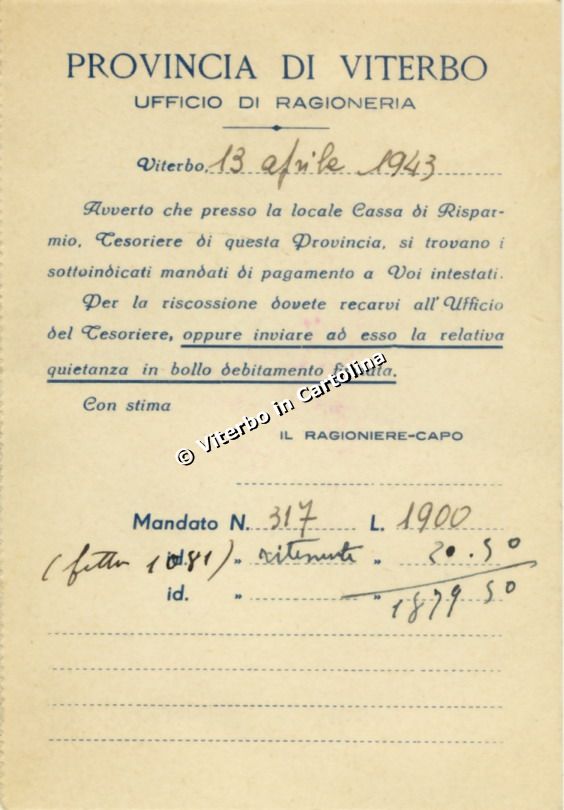 PROVINCIA DI VITERBO
UFFICIO DI RAGIONERIA
Viterbo, 13 aprile 1943
Avverto che presso la locale Cassa di Rispar-
mio, Tesoriere di questa Provincia, si trovano i
sottoindicati mandati di pagamento a Voi intestati.
Per la riscossione dovete recarvi all'Ufficio
del Tesoriere, oppure inviare ad esso la relativa
quietanza in bollo debitamento firmata.
Con stima
© Viterbo in Cartolina
IL RAGIONIERE-CAPO
Mandato N. 317 L. 1900
( 1081) id. " ritenute " 20.50
id. " " 1879 50